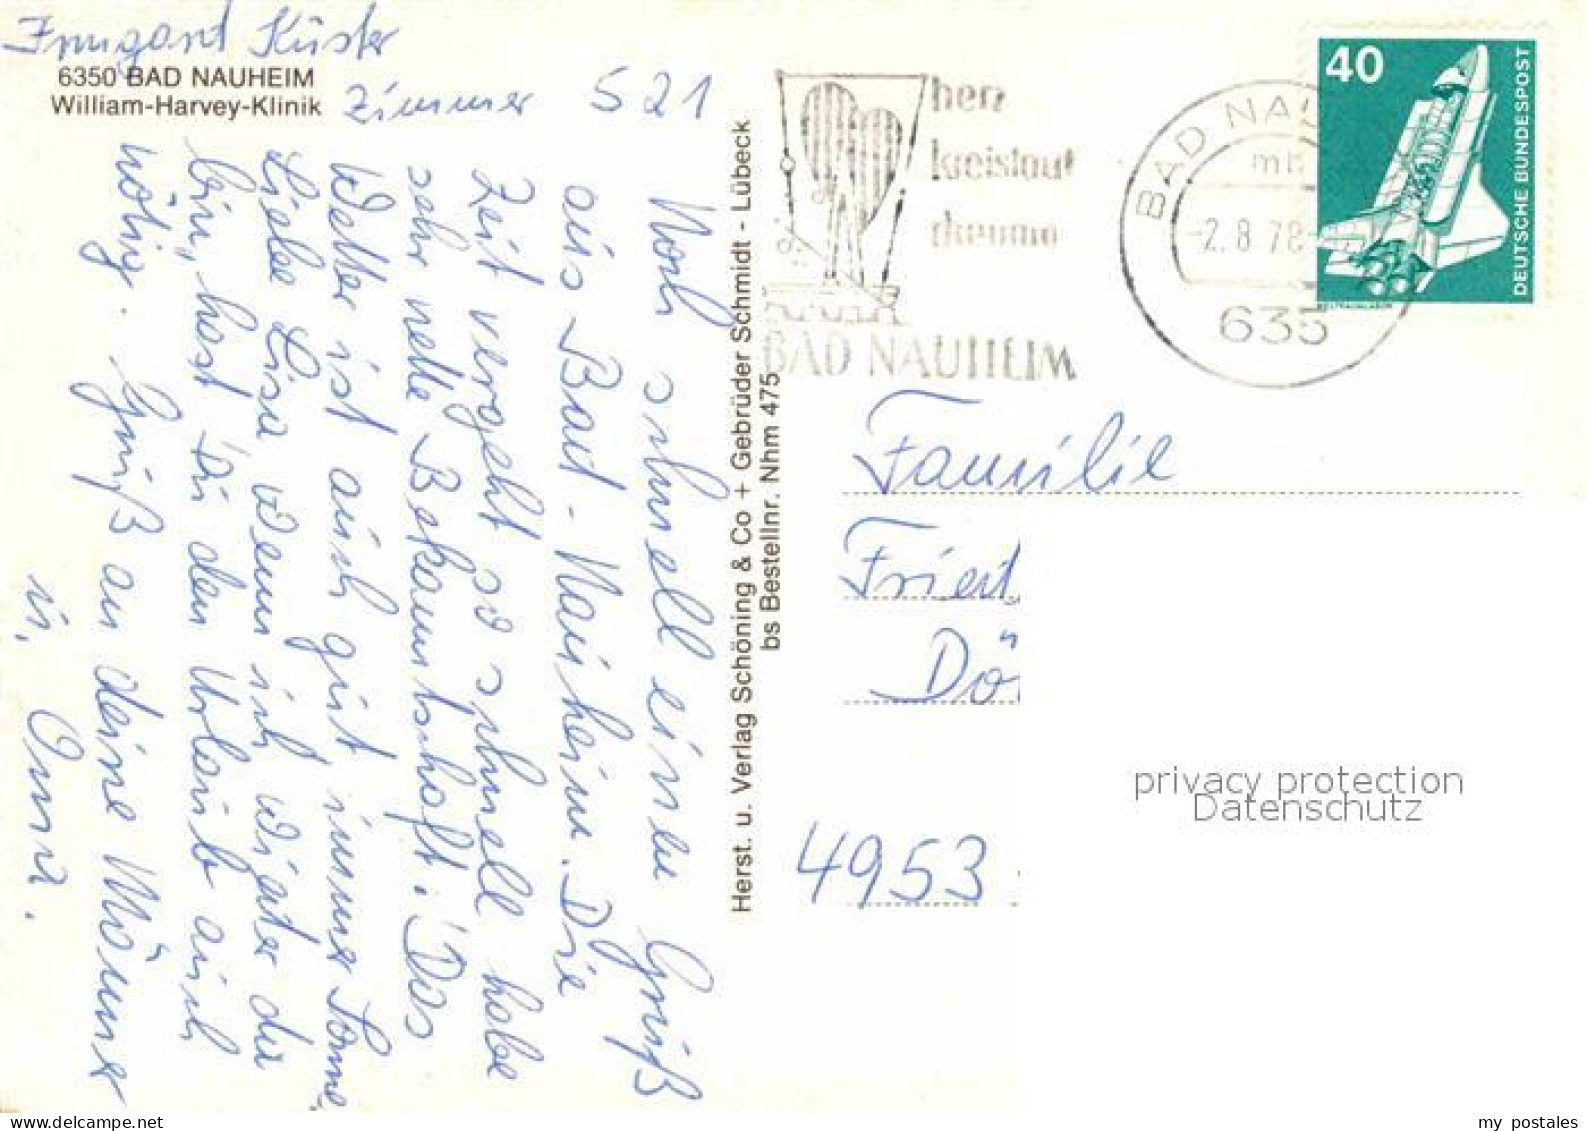 Irmgard Küster
6350 BAD NAUHEIM
William-Harvey-Klinik
Zimmer 521
Noch schnell einen Gruß
aus Bad-Nauheim. Die
Zeit vergeht so schnell habe
sehr nette Bekanntschaft. Das
Wetter ist auch gut immer Sonne.
Liebe Lisa wenn ich wieder da
bin, hast du den Urlaub auch
nötig. Gruß an deine Männer
u. Omma.
Herst. u. Verlag Schöning & Co + Gebrüder Schmidt - Lübeck
bs Bestellnr. Nhm 475
herz
kreislauf
rheuma
BAD NAUHEIM
BAD NAU
mb
-2.8.78
635
40
DEUTSCHE BUNDESPOST
WELTRAUMLABOR
Familie
Fried
Dö
4953
privacy protection
Datenschutz
my postales